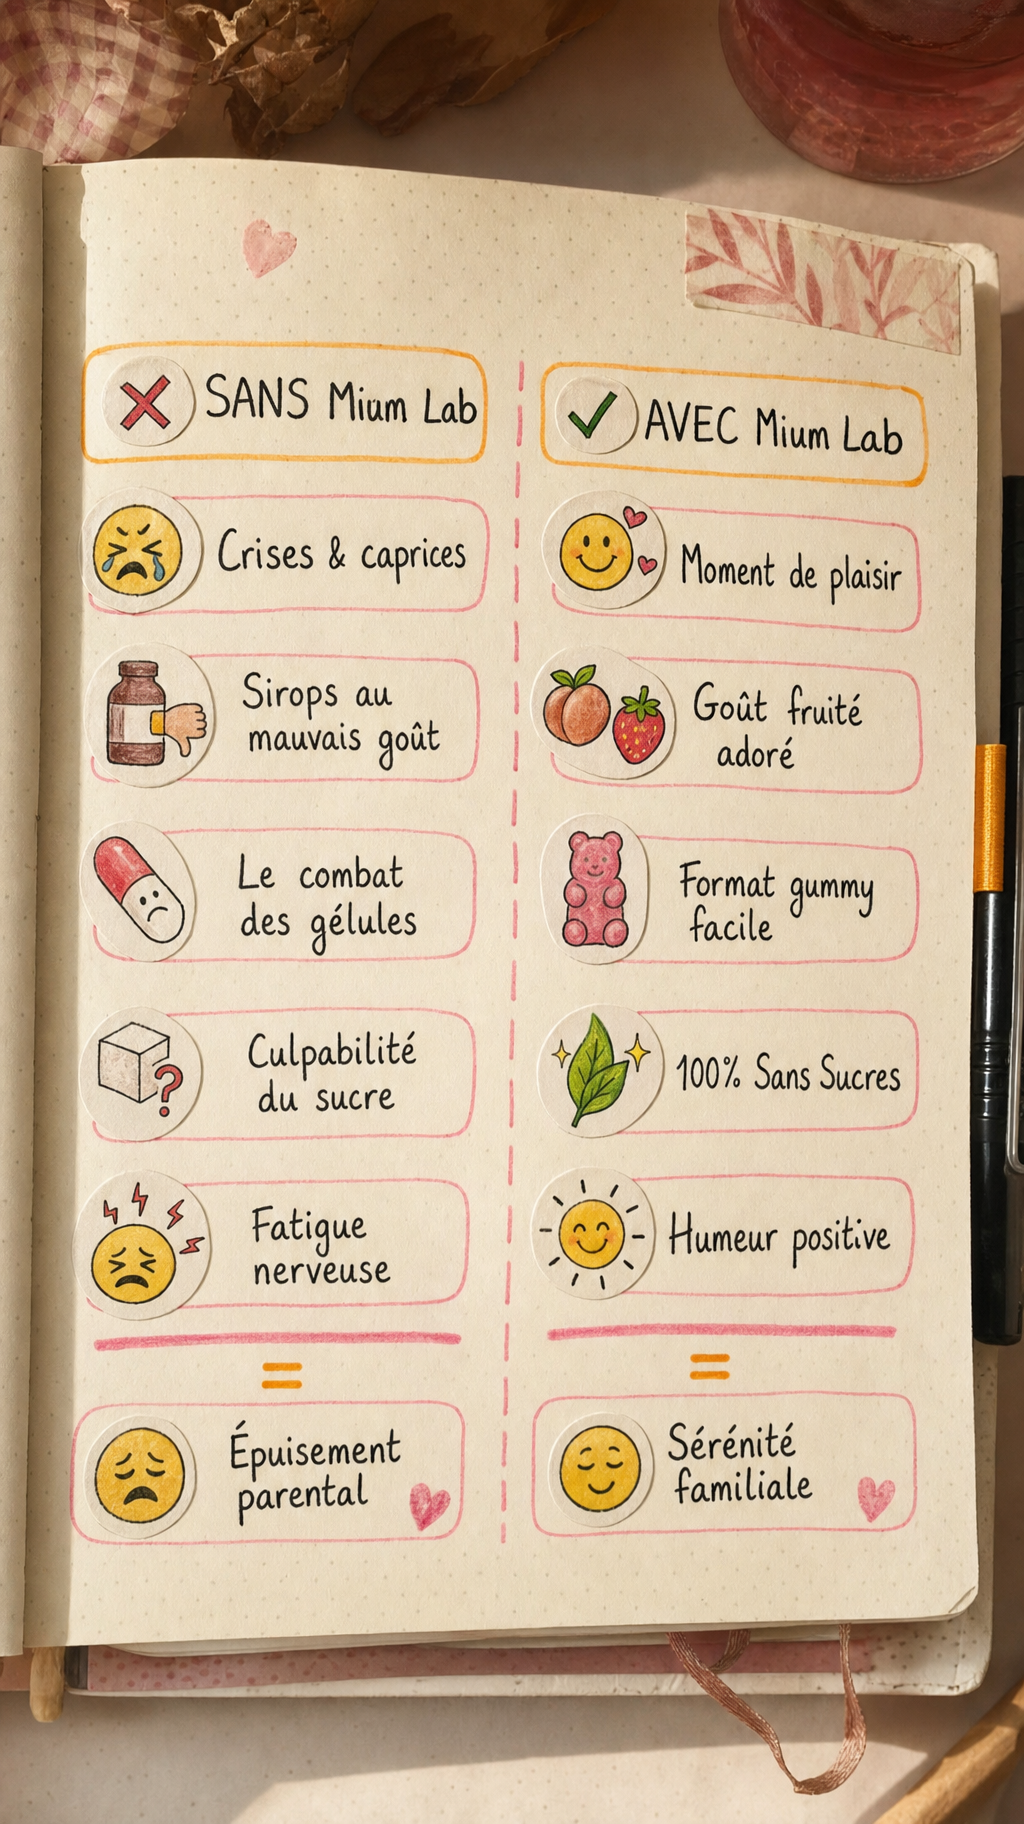 SANS Mium Lab
Crises & caprices
Sirops au
mauvais goût
Le combat
des gélules
Culpabilité
du sucre
Fatigue
nerveuse
=
Épuisement
parental
AVEC Mium Lab
Moment de plaisir
Goût fruité
adoré
Format gummy
facile
100% Sans Sucres
Humeur positive
=
Sérénité
familiale